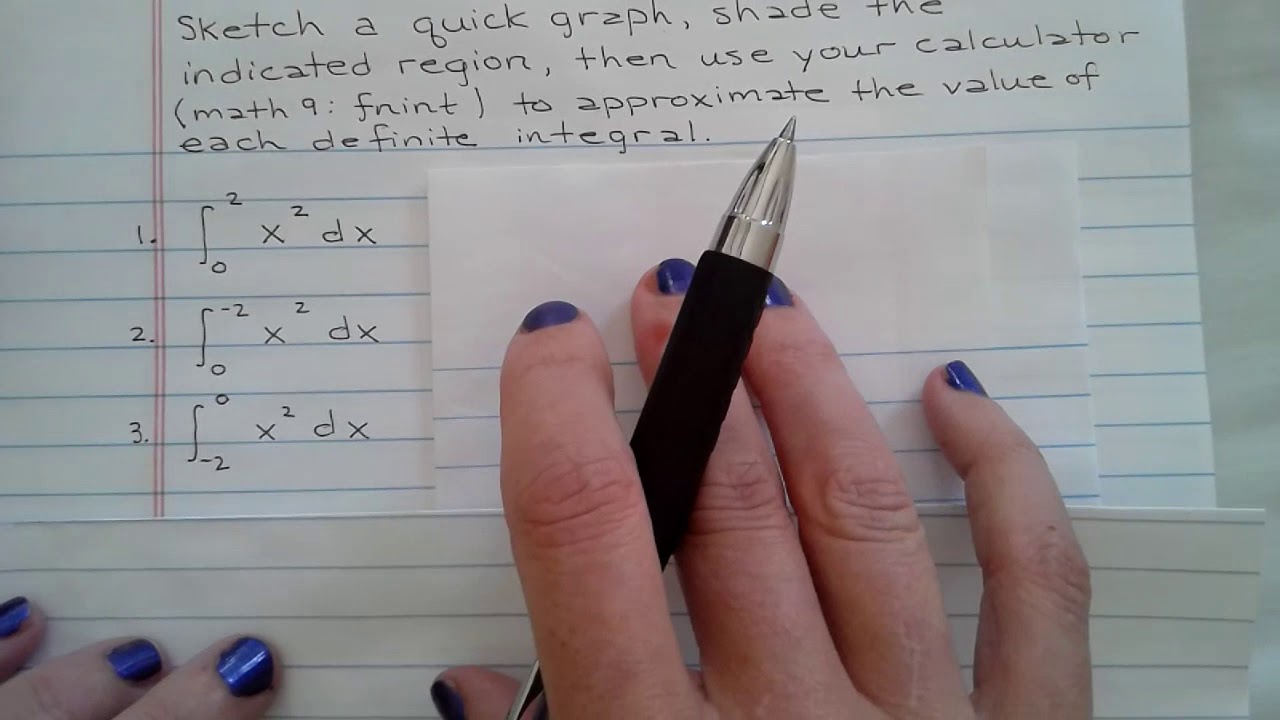 Sketch a quick graph, shade the
indicated region, then use your calculator
(math 9: fnint) to approximate the value of
each definite integral.
1. ∫₀² x² dx
2. ∫₀⁻² x² dx
3. ∫₋₂⁰ x² dx